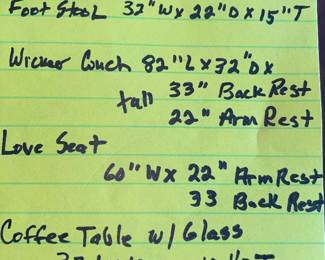 Foot Stool 32"W x 22"D x 15"T
Wicker Couch 82"L x 32"D x
tall 33" Back Rest
22" Arm Rest
Love Seat
60"W x 22" Arm Rest
33 Back Rest
Coffee Table w/ Glass